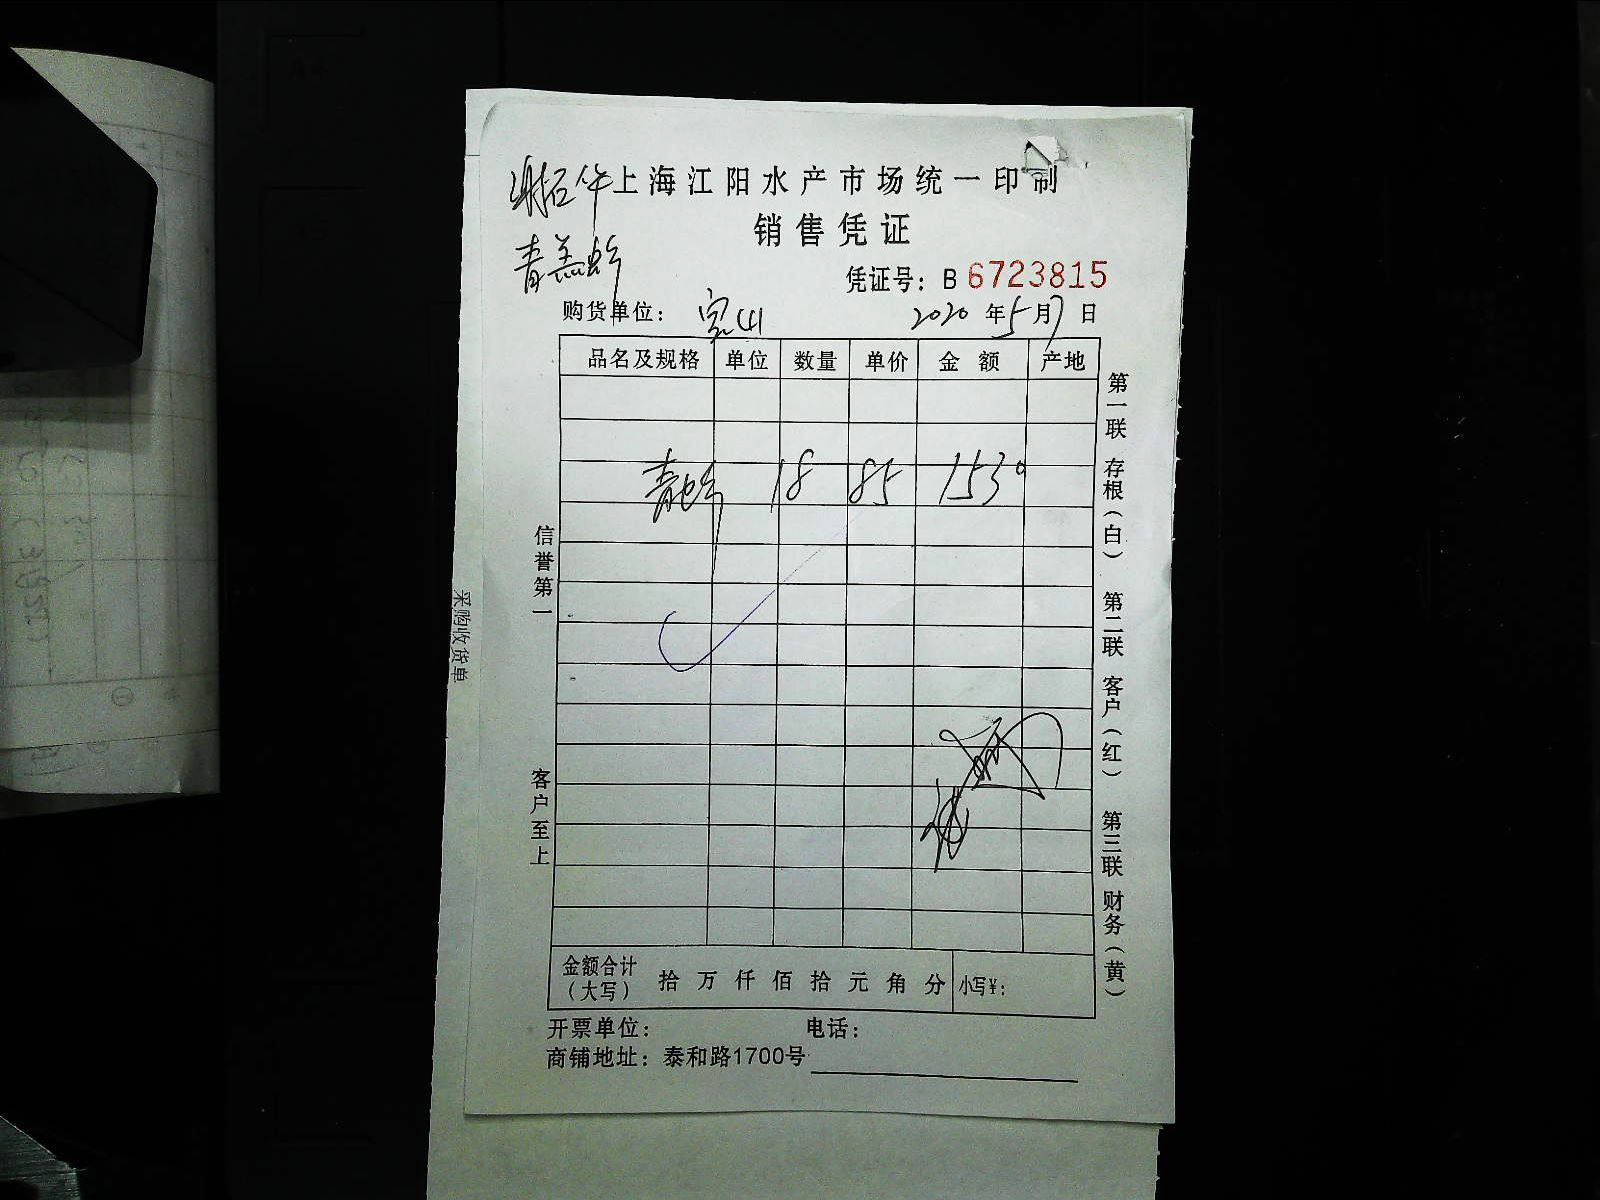 上海江阳水产市场统一印制
销售凭证
凭证号：B 6723815
购货单位：宝山 2020年5月7日
品名及规格 单位 数量 单价 金额 产地
18 85 1530
信誉第一
客户至上
第一联 存根（白） 第二联 客户（红） 第三联 财务（黄）
金额合计（大写） 拾 万 仟 佰 拾 元 角 分 小写¥：
开票单位： 电话：
商铺地址：泰和路1700号
采购收货单